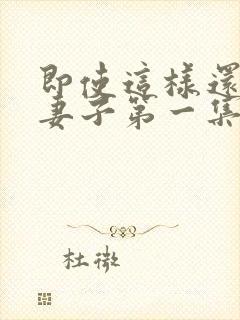 即使這樣還
妻子第一集
杜微